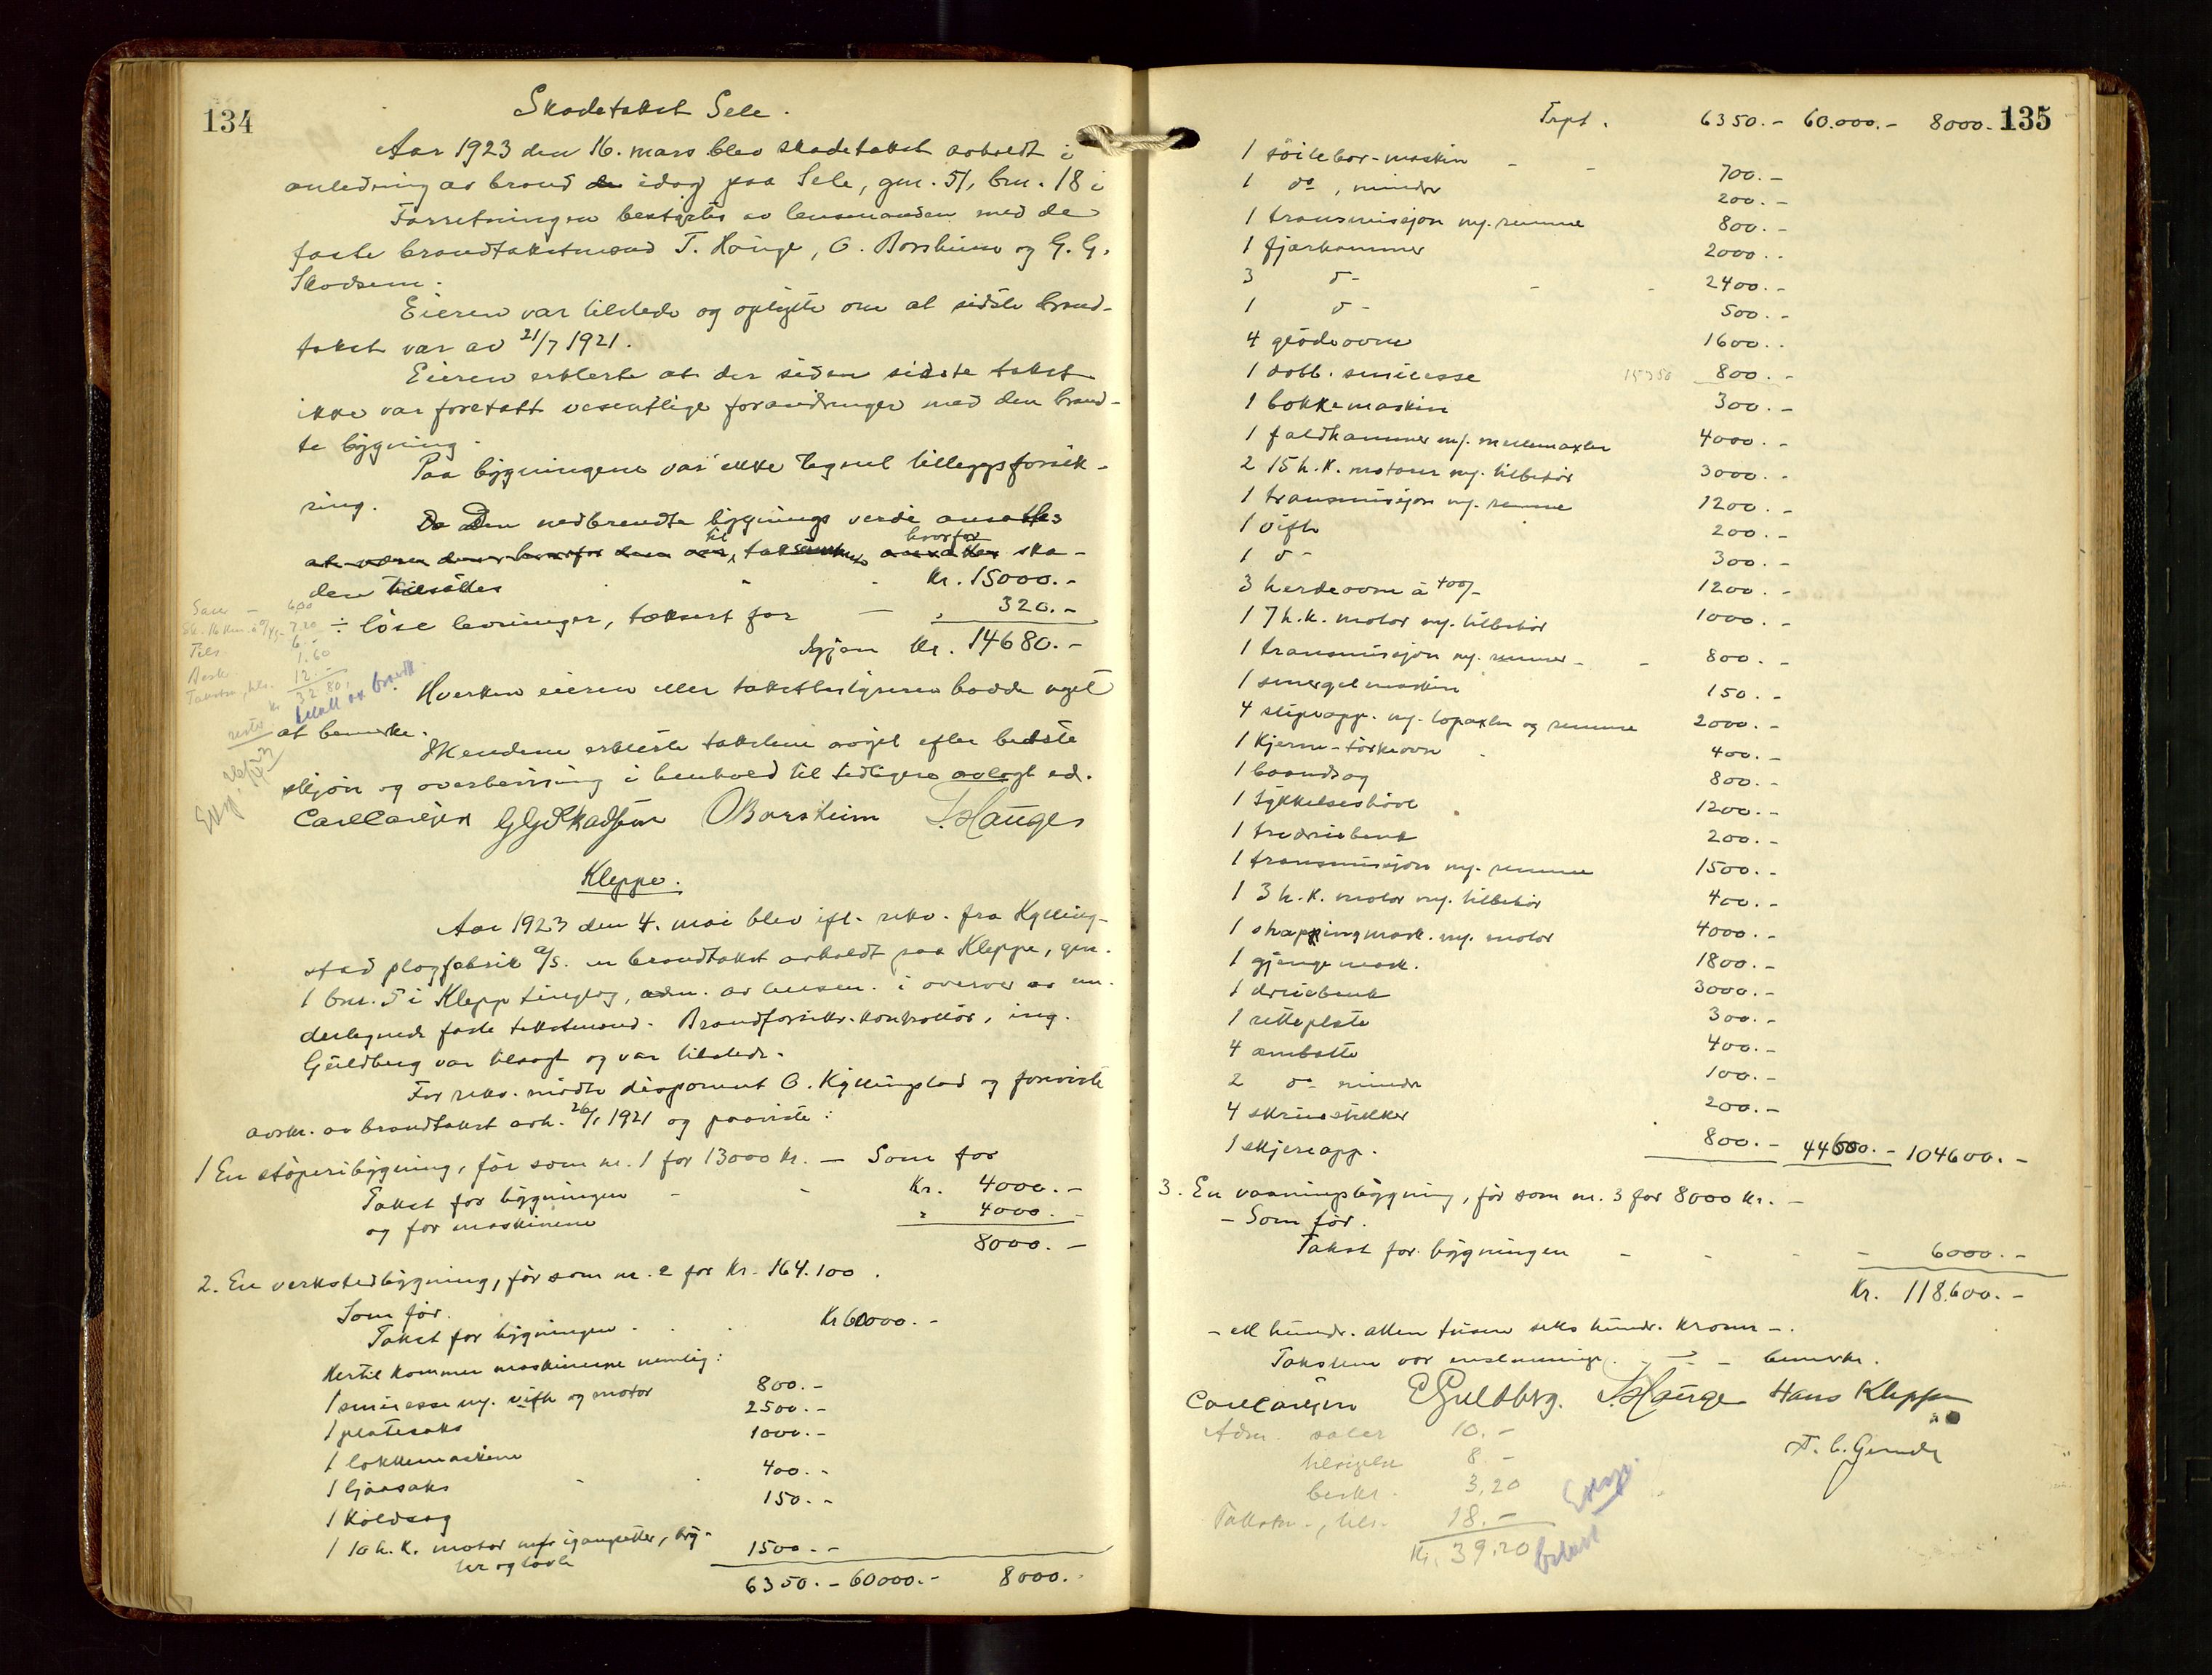 134
Skadetakst Sele.
Aar 1923 den 16. mars blev skadetakst avholdt i
anledning av brand idag paa Sele, gnr. 51, bnr. 18 i
Forretningen bestyrtes av lensmanden med de
faste brandtakstmænd T. Hauge, O. Borsheim og G. G.
Skadsem.
Eieren var tilstede og oplyste om at sidste brand-
takst var av 21/7 1921.
Eieren erklerte at der siden sidste takst
ikke var foretatt vesentlige forandringer med den brand-
te bygning.
Paa bygningene var ikke tegnet tilleggsforsik-
ring.
Da Den nedbrendte bygnings verdi ansattes
til hvorfor ska-
den tilsattes Kr. 15000.-
÷ löse levninger, taksert for — " 320.-
Igjen Kr. 14680.-
Hverken eieren eller takstbestyreren hadde noget
at bemerke.
Mendene erklerte taksten avgit efter bedste
skjön og overbevisning i henhold til tidligere avlagt ed.
Carl Carlsen G G Skadsem O Borsheim T. Hauge
Salær - 6.00
7.20
Tils. 6.-
1.60
12.-
Kr. 32.80
betalt av brandk.
Kleppe.
Aar 1923 den 4. mai blev ifl. rekv. fra Kylling-
stad plogfabrik A/S. en brandtakst avholdt paa Kleppe, gnr.
1 bnr. 5 i Klepp tinglag, adm. av lensm. i overver av un-
dertegnede faste takstmænd. Brandforsikr.kontrollör, ing.
Guldberg var tilsagt og var tilstede.
For rekv. mödte disponent O. Kyllingstad og foreviste
avskr. av brandtakst avh. 26/1 1921 og paaviste:
1 En stöperibygning, för som nr. 1 for 13000 kr. — Som för
Takst for bygningen - - Kr. 4000.-
og for maskinene " 4000.-
8000.-
2. En verkstedbygning, för som nr. 2 for Kr. 164.100.
Som för.
Takst for bygningen - . . Kr 60000.-
Hertil kommer maskinerne nemlig:
1 smiesse m/. vifte og motor 800.-
1 platesaks 2500.-
1 lokkemaskine 1000.-
1 ljaasaks 400.-
1 koldsag 150.-
1 10 h.k. motor m/. igangsetter, bry-
ter og tavle 1500.-
6350.- 60000.- 8000.-
135
Trpt. 6350.- 60.000.- 8000.-
1 söilebor-maskin - - 700.-
1 do, mindre 200.-
1 transmisjon m/. remme 800.-
1 fjærhammer 2000.-
3 d- - - 2400.-
1 d- 500.-
4 glödeovne 1600.-
1 dobb. smiesse 15350 800.-
1 bokkemaskin 300.-
1 faldhammer m/. mellemaxler 4000.-
2 15 h.k. motorer m/. tilbehör 3000.-
1 transmisjon m/. remme 1200.-
1 vifte 200.-
1 d- 300.-
3 herdeovne à 400/- 1200.-
1 7 h.k. motor m/. tilbehör 1000.-
1 transmisjon m/. remmer - - 800.-
1 smergelmaskin 150.-
4 slipeapp. m/. topaxler og remme 2000.-
1 kjerne-törkeovn 400.-
1 baandsag 800.-
1 tykkelseshövl 1200.-
1 tredreiebenk 200.-
1 transmisjon m/. remme 1500.-
1 3 h.k. motor m/. tilbehör 400.-
1 shappingmask. m/. motor 4000.-
1 gjengemask. 1800.-
1 dreiebenk 3000.-
1 retteplate 300.-
4 ambolte 400.-
2 do mindre 100.-
4 skruestikker 200.-
1 skjereapp. 800.- 44600.- 104600.-
3. En vaaningsbygning, för som nr. 3 for 8000 kr. -
- Som för.
Takst for bygningen - - - - 6000.-
Kr. 118.600.-
- ett hundr. atten tusen seks hundr. kroner -.
Taksten var enstemmige. bemerkn.
Carl Carlsen E Guldberg. T. Hauge Hans Kleppe
Adm. salær 10.-
tilsigelse 8.-
beskr. 3,20
Takstm., tils. 18.-
Kr. 39,20
Exp.
betalt